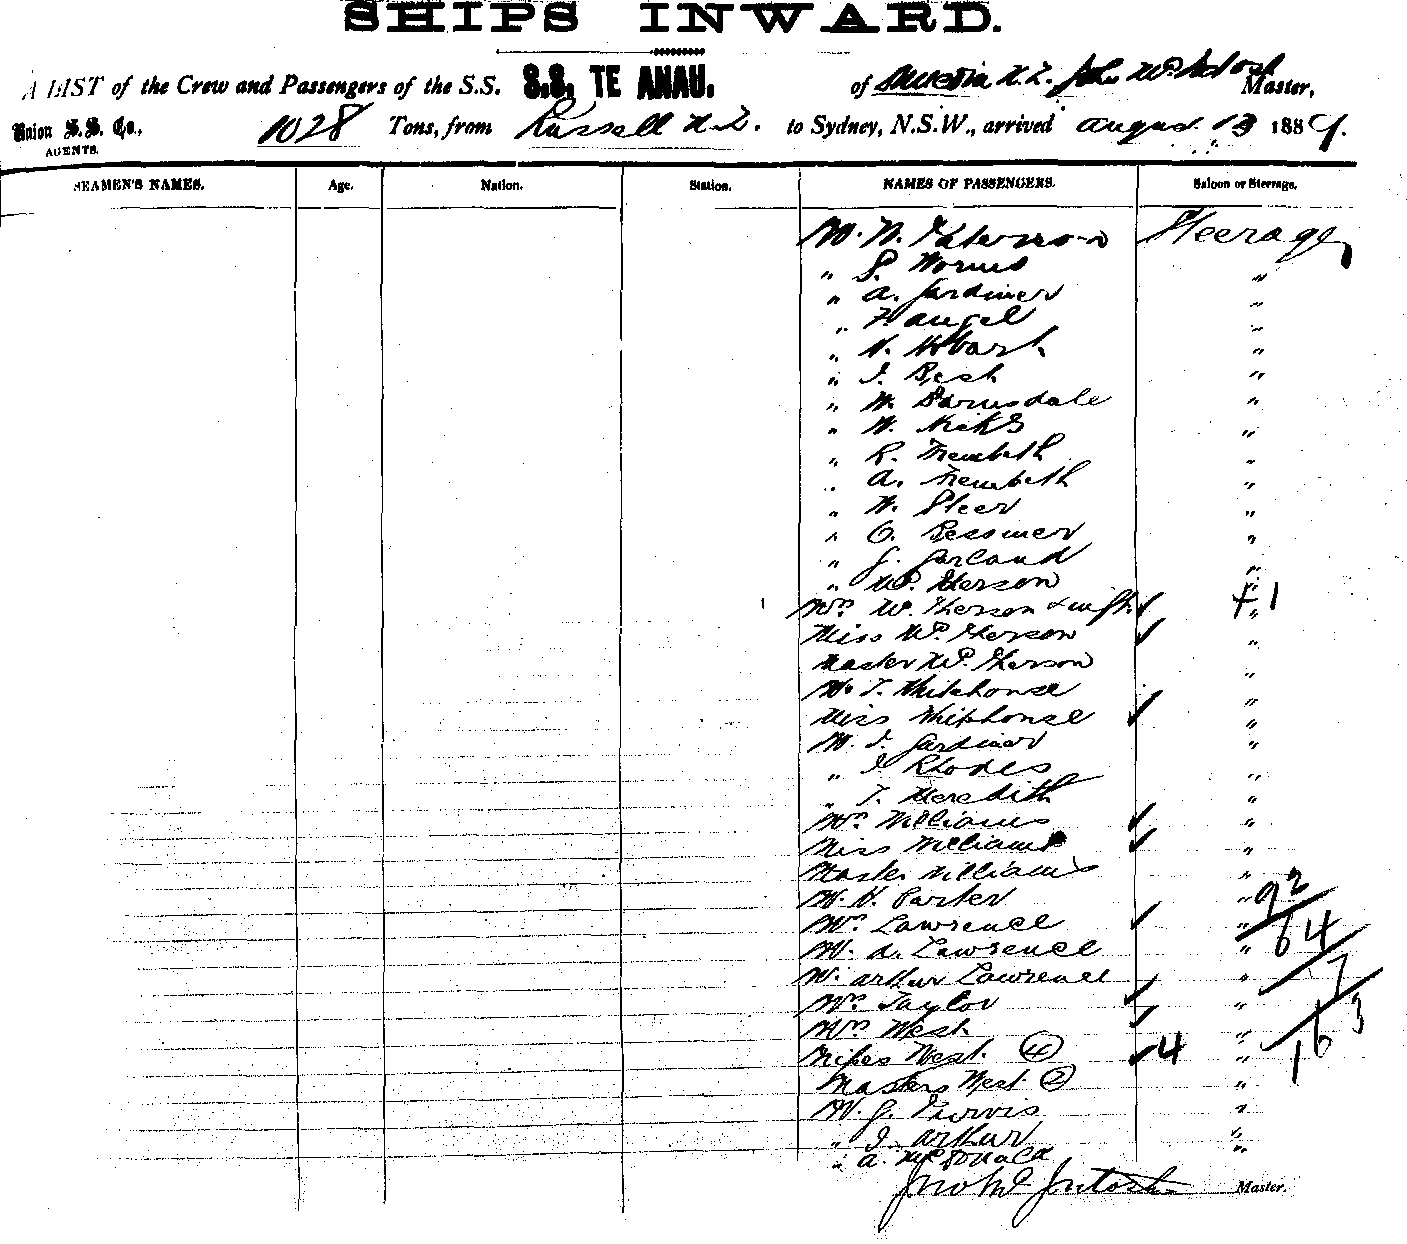 SHIPS INWARD.
A LIST of the Crew and Passengers of the S.S. S.S. TE ANAU. of Dunedin N.Z. John McIntosh Master,
Union S.S. Co., 1028 Tons, from Russell N.Z. to Sydney, N.S.W., arrived August 13 188
AGENTS.
SEAMEN'S NAMES. Age. Nation. Station. NAMES OF PASSENGERS. Saloon or Steerage.
Mr. W. Paterson Steerage
" S. "
" A. Gardiner "
" "
" H. Hobart "
" J. Best "
" W. Barnsdale "
" W. Hicks "
" R. Trembath "
. A. Trembath "
" W. Steer "
" O. Bessmer "
" J. Garland "
" McPherson "
Mrs McPherson & inft. ✓ +1
Miss McPherson ✓ "
Master McPherson "
Mr T. Whitehouse "
Miss Whitehouse ✓ "
Mr. J. Gardiner "
" J Rhodes "
" T. Meredith "
Mrs Williams ✓ "
Miss Williams ✓ "
Master Williams "
Mr. H. Parker " 92
Mrs Lawrence ✓ " 64
Mr. A. Lawrence "
Mr. Arthur Lawrence " 7
Mrs Taylor ✓ "
Mrs West ✓ " 163
Misses West (4) ✓4 "
Masters West (2) "
Mr. J. Purvis "
" J. Arthur "
" A. McDonald "
Jno McIntosh Master.